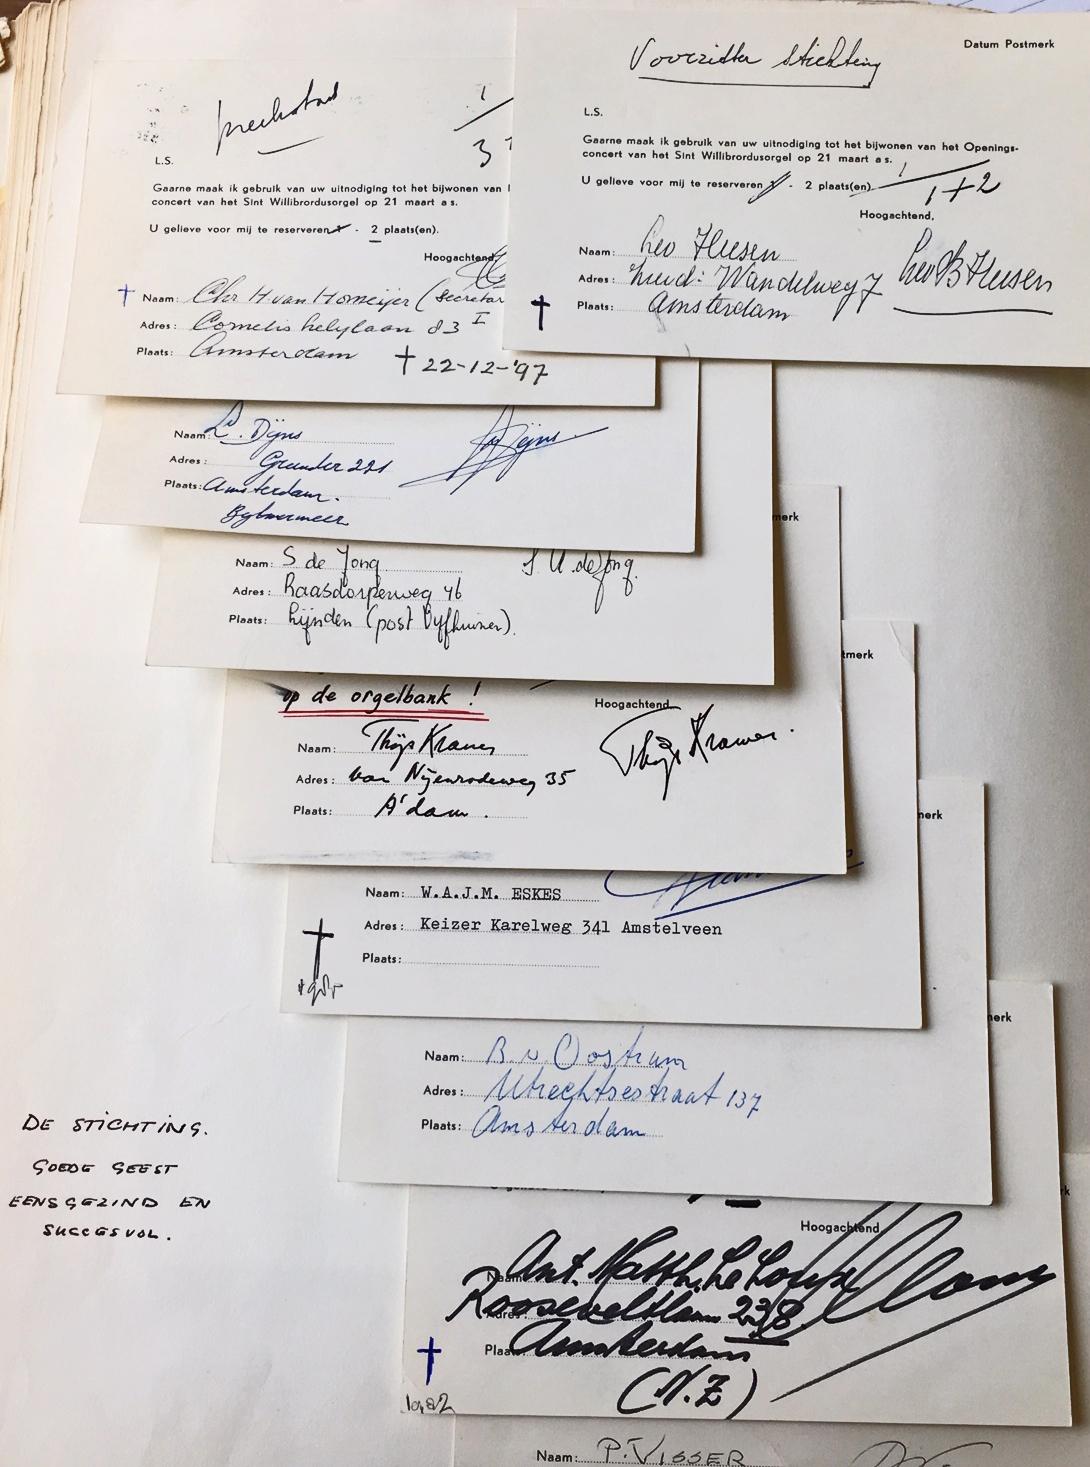 Datum Postmerk
Voorzitter stichting
L.S.
Gaarne maak ik gebruik van uw uitnodiging tot het bijwonen van het Openings-
concert van het Sint Willibrordusorgel op 21 maart a s.
U gelieve voor mij te reserveren - 2 plaats(en). 1
1+2
Hoogachtend,
Naam: Leo Heesen
Adres: Zuid: Wandelweg 7 Leo B Heesen
Plaats: Amsterdam
1
3
L.S.
Gaarne maak ik gebruik van uw uitnodiging tot het bijwonen van
concert van het Sint Willibrordusorgel op 21 maart a s.
U gelieve voor mij te reserveren - 2 plaats(en).
Hoogachtend,
Naam: Chr H. van Homeijer (secretar
Adres: Cornelis 83 I
Plaats: Amsterdam † 22-12-'97
Naam: L. Dijns
Adres: 221
Plaats: Amsterdam.
Bylmermeer
merk
Naam: S de Jong S U de Jong.
Adres: Raasdorperweg 46
Plaats: Lijnden (post Vyfhuizen).
tmerk
op de orgelbank !
Hoogachtend
Naam: Thijs Kramer Thijs Kramer.
Adres: van Nijenrodeweg 35
Plaats: A'dam.
merk
Naam: W.A.J.M. ESKES
Adres: Keizer Karelweg 341 Amstelveen
Plaats:
merk
Naam: B. v. Oostrum
Adres: Utrechtsestraat 137
Plaats: Amsterdam
DE STICHTING.
GOEDE GEEST
EENSGEZIND EN
SUCCESVOL.
rk
Hoogachtend
Naam: Ant. Matth. Le Loux
Adres: Rooseveltlaan 238
Plaats: Amsterdam
(N.Z)
1982
Naam: P. VISSER